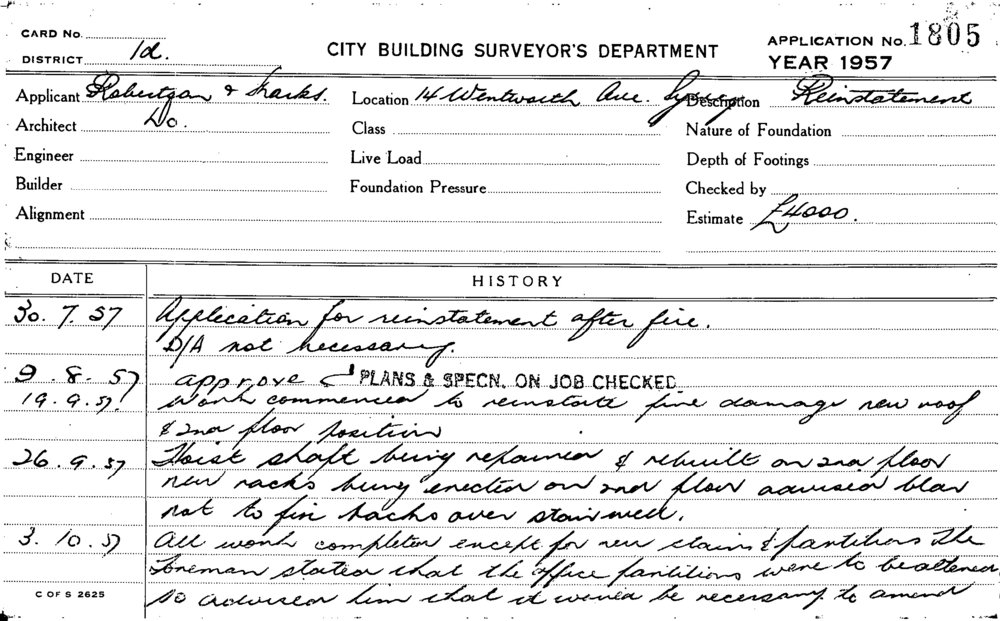 CARD No.
DISTRICT 1d.
CITY BUILDING SURVEYOR'S DEPARTMENT
APPLICATION No. 1805
YEAR 1957
Applicant Robertson & Marks. Location 14 Wentworth Ave. Sydney Description Reinstatement
Architect Do. Class Nature of Foundation
Engineer Live Load Depth of Footings
Builder Foundation Pressure Checked by
Alignment Estimate £4000.
DATE HISTORY
30. 7. 57 Application for reinstatement after fire.
D/A not necessary.
9. 8. 57 approve PLANS & SPECN. ON JOB CHECKED
19. 9. 57 Work commenced to reinstate fire damage new roof
& 2nd floor position
26. 9. 57 Hoist shaft being repaired & rebuilt on 2nd floor
new racks being erected on 2nd floor advised
not to fix racks over stairwell.
3. 10. 57 All work completed except for new & partitions The
Foreman stated that the office partitions were to be altered
so advised him that it would be necessary to amend
C OF S 2625